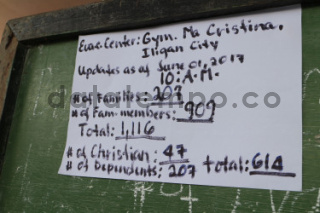 Evac. Center: Gym. Ma Cristina,
Iligan City
Updates as of June 01, 2017
10: A.M.
# of Families: 207
# of Fam. members: 909
Total: 1,116
# of Christian: 47
# of Dependents: 207 Total: 614
datatempo.co